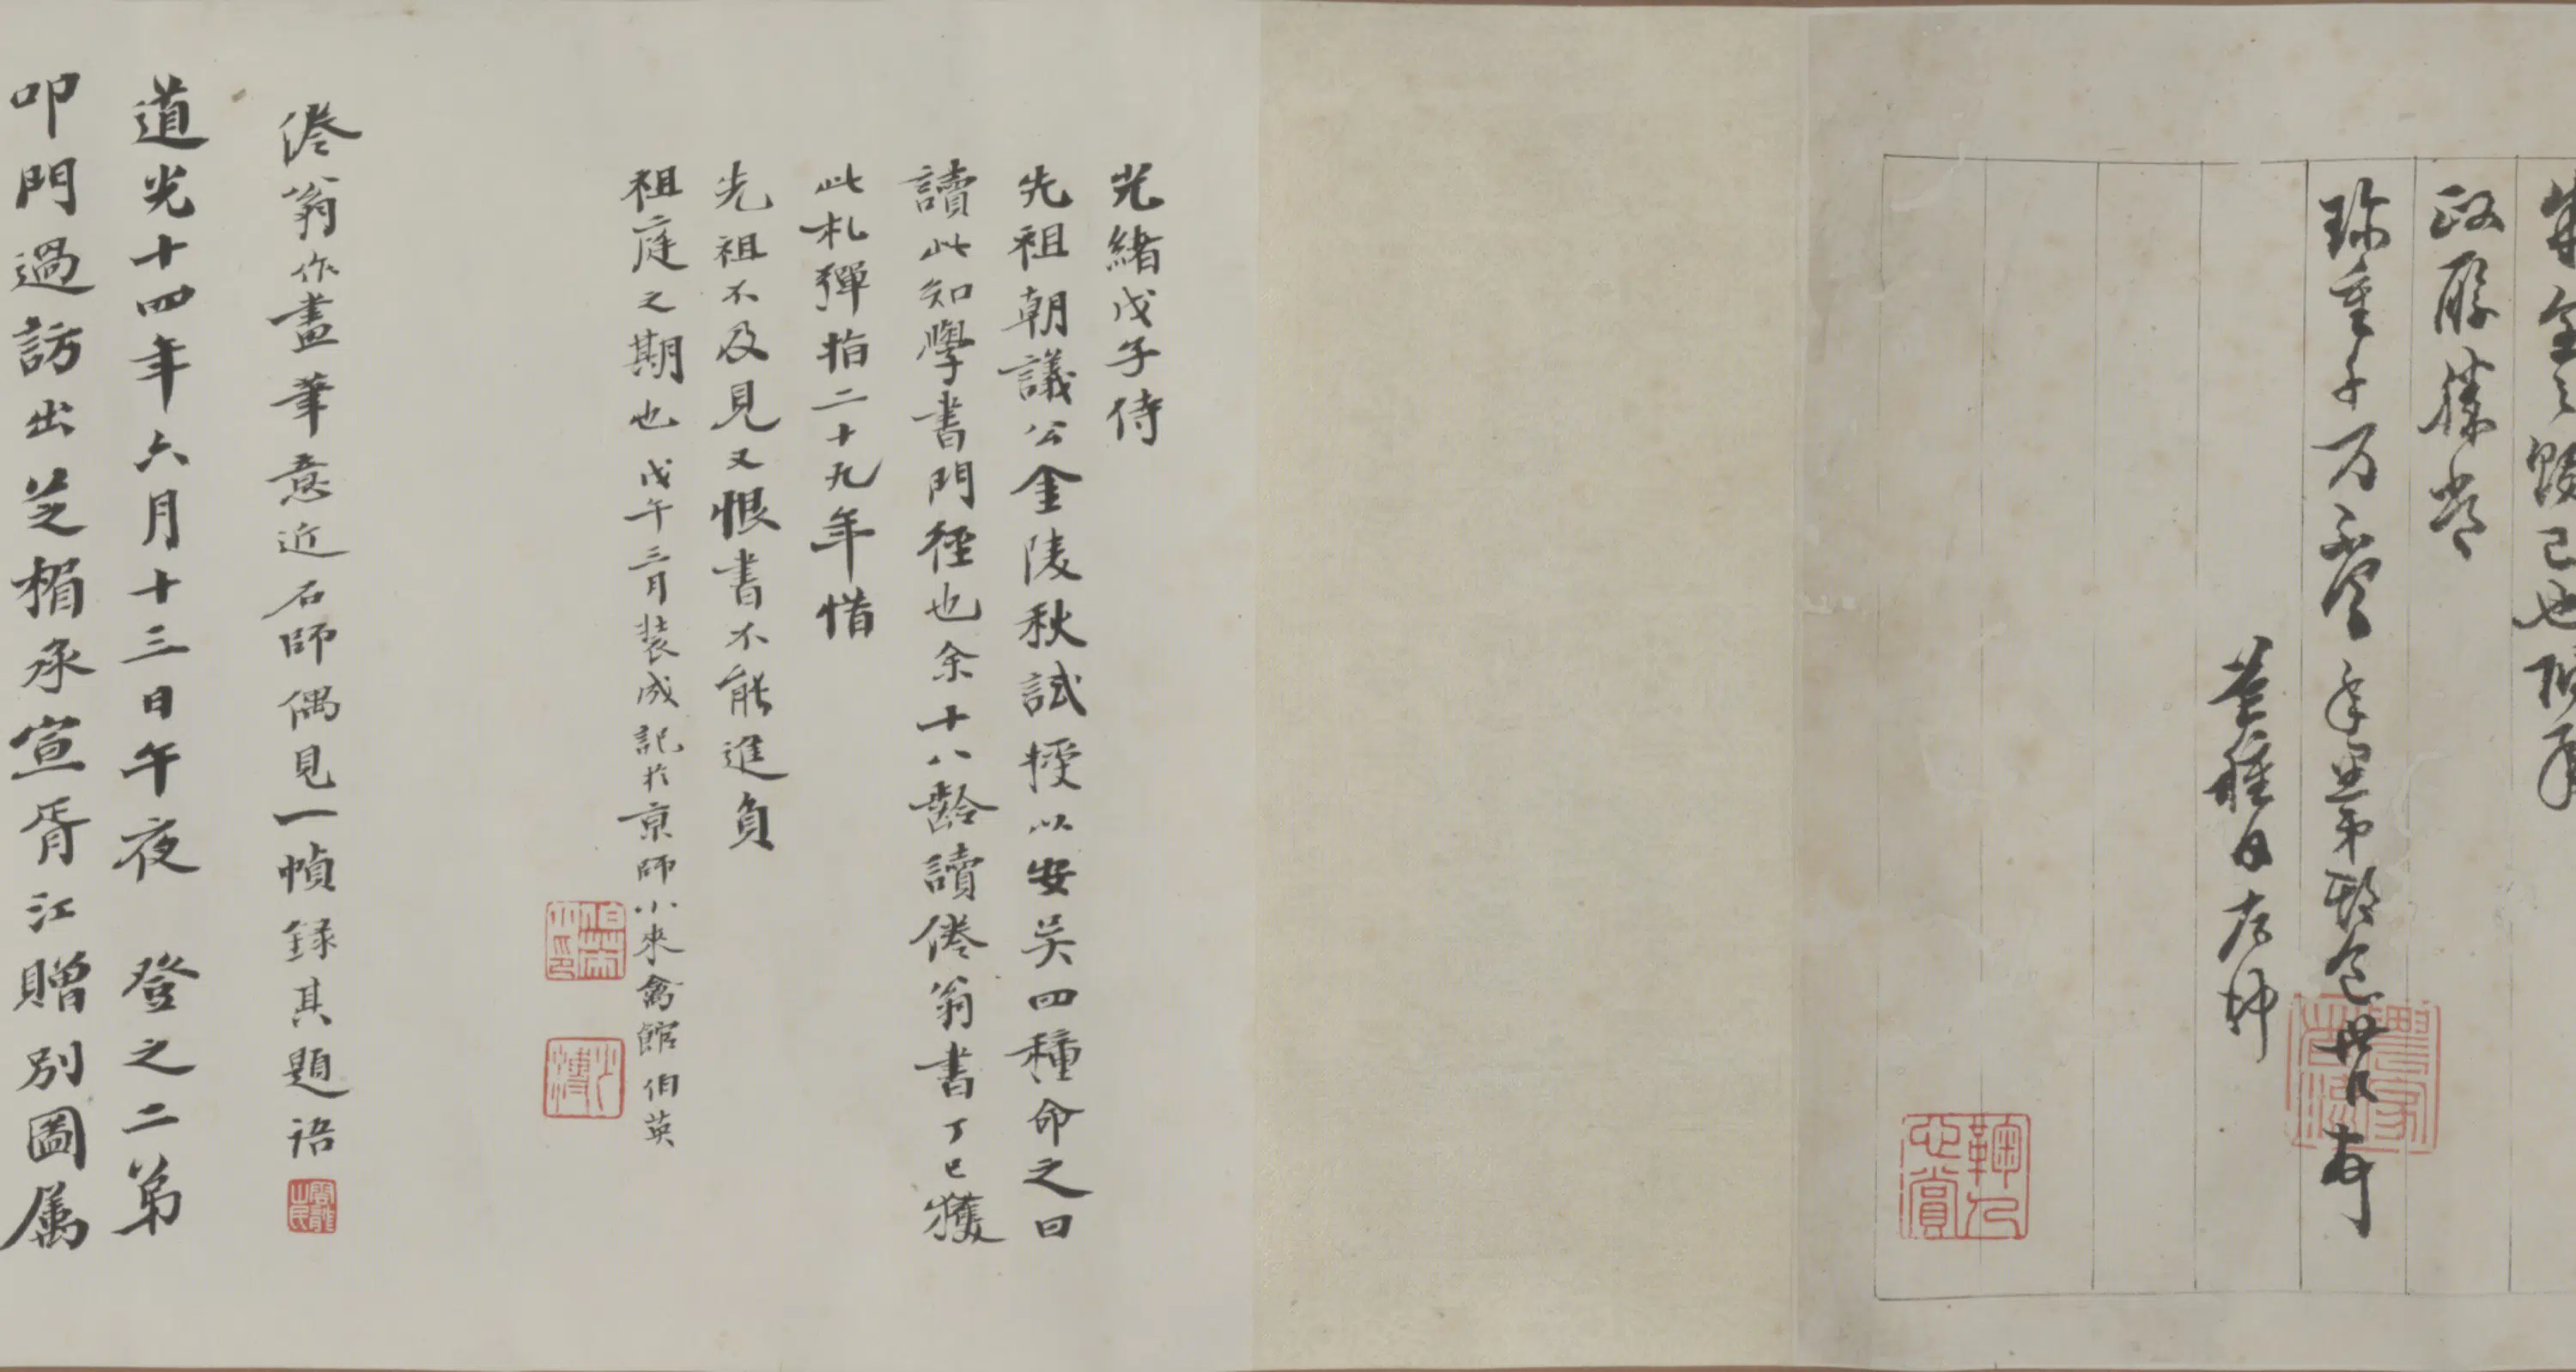 政履勝常
珍重千万不盡
芒種日
光緒戊子侍
先祖朝議公金陵秋試授以安吴四種命之曰
讀此知學書門徑也余十八齡讀倦翁書丁巳獲
此札彈指二十九年惜
先祖不及見又恨書不能進負
祖庭之期也戊午三月装成記於京師小來禽館伯英
倦翁作畫筆意近石師偶見一幀録其題語
道光十四年六月十三日午夜登之二弟
叩門過訪出芝楣承宣胥江贈別圖属